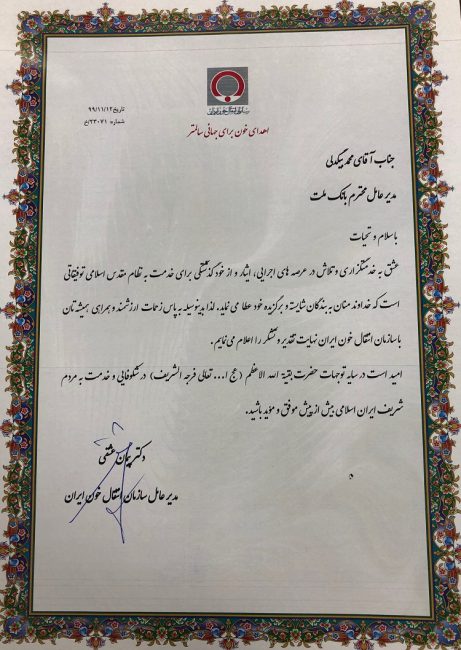 تاریخ: ۹۹/۱۱/۱۲
شماره: ۲۳۰۷۱/خ
سازمان انتقال خون ایران
اهدای خون برای جهانی سالمتر
جناب آقای محمد بیگدلی
مدیر عامل محترم بانک ملت
با سلام و تحیات
عشق به خدمتگزاری و تلاش در عرصه های اجرایی، ایثار و از خود گذشتگی برای خدمت به نظام مقدس اسلامی توفیقاتی
است که خداوند منان به بندگان شایسته و برگزیده خود عطا می نماید. لذا بدینوسیله به پاس زحمات ارزشمند و همراهی همیشه تان
با سازمان انتقال خون ایران نهایت تقدیر و تشکر را اعلام می نمایم.
امید است در سایه توجهات حضرت بقیة الله الاعظم (عج ا... تعالی فرجه الشریف) در شکوفایی و خدمت به مردم
شریف ایران اسلامی بیش از پیش موفق و مؤید باشید.
دکتر پیمان عشقی
مدیر عامل سازمان انتقال خون ایران